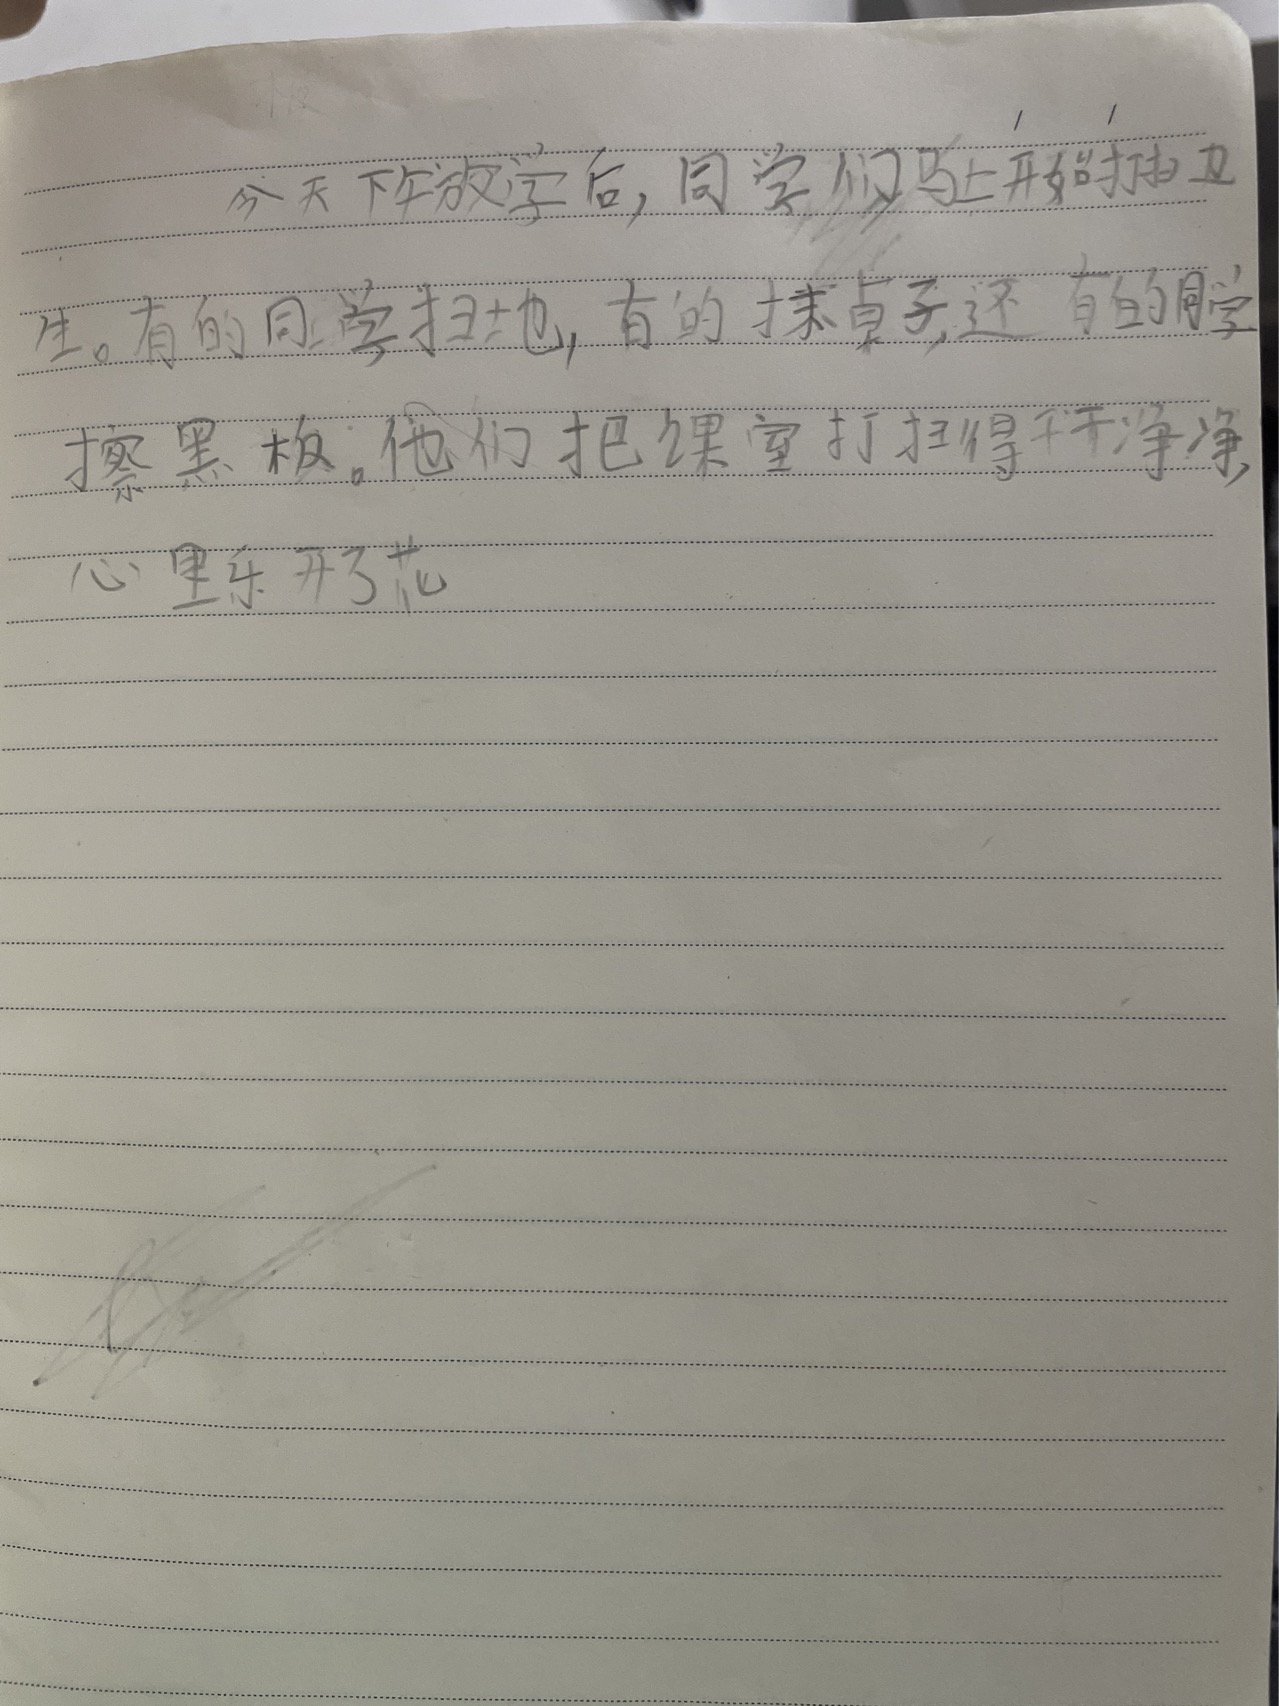 今天下午放学后,同学们马上开始打扫卫
生。有的同学扫地,有的抹桌子,还有的同学
擦黑板。他们把课室打扫得干干净净,
心里乐开了花